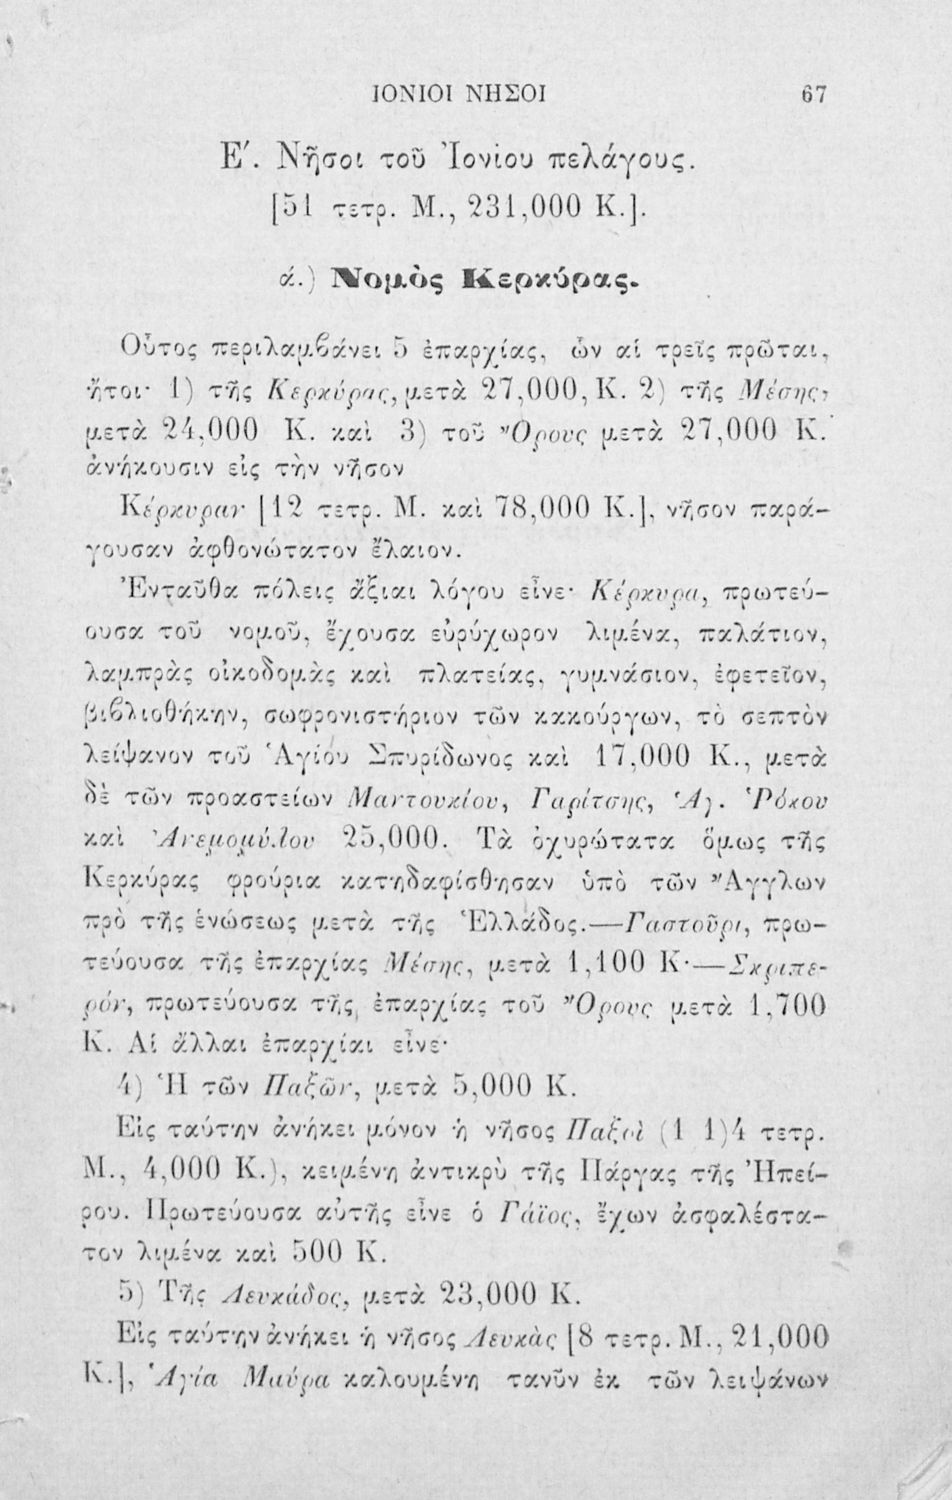 ΙΟΝΙΟΙ ΝΗΣΟΙ 67
Ε΄. Νῆσοι τοῦ Ἰονίου πελάγους.
[51 τετρ. Μ., 231,000 Κ.].
ά.) Νομὸς Κερκύρας.
Οὗτος περιλαμβάνει 5 ἐπαρχίας, ὧν αἱ τρεῖς πρῶται,
ἤτοι· 1) τῆς Κερκύρας, μετὰ 27,000, Κ. 2) τῆς Μέσης,
μετὰ 24,000 Κ. καὶ 3) τοῦ Ὄρους μετὰ 27,000 Κ.
ἀνήκουσιν εἰς τὴν νῆσον
Κέρκυραν [12 τετρ. Μ. καὶ 78,000 Κ.], νῆσον παρά-
γουσαν ἀφθονώτατον ἔλαιον.
Ἐνταῦθα πόλεις ἄξιαι λόγου εἶνε· Κέρκυρα, πρωτεύ-
ουσα τοῦ νομοῦ, ἔχουσα εὐρύχωρον λιμένα, παλάτιον,
λαμπρὰς οἰκοδομὰς καὶ πλατείας, γυμνάσιον, ἐφετεῖον,
βιβλιοθήκην, σωφρονιστήριον τῶν κακούργων, τὸ σεπτὸν
λείψανον τοῦ Ἁγίου Σπυρίδωνος καὶ 17,000 Κ., μετὰ
δὲ τῶν προαστείων Μαντουκίου, Γαρίτσης, Ἁγ. Ῥόκου
καὶ Ἀνεμομύλου 25,000. Τὰ ὀχυρώτατα ὅμως τῆς
Κερκύρας φρούρια κατηδαφίσθησαν ὑπὸ τῶν Ἄγγλων
πρὸ τῆς ἑνώσεως μετὰ τῆς Ἑλλάδος.—Γαστοῦρι, πρω-
τεύουσα τῆς ἐπαρχίας Μέσης, μετὰ 1,100 Κ·—Σκριπε-
ρόν, πρωτεύουσα τῆς ἐπαρχίας τοῦ Ὄρους μετὰ 1,700
Κ. Αἱ ἄλλαι ἐπαρχίαι εἶνε·
4) Ἡ τῶν Παξῶν, μετὰ 5,000 Κ.
Εἰς ταύτην ἀνήκει μόνον ἡ νῆσος Παξοὶ (1 1)4 τετρ.
Μ., 4,000 Κ.), κειμένη ἀντικρὺ τῆς Πάργας τῆς Ἠπεί-
ρου. Πρωτεύουσα αὐτῆς εἶνε ὁ Γάϊος, ἔχων ἀσφαλέστα-
τον λιμένα καὶ 500 Κ.
5) Τῆς Λευκάδος, μετὰ 23,000 Κ.
Εἰς ταύτην ἀνήκει ἡ νῆσος Λευκὰς [8 τετρ. Μ., 21,000
Κ.], Ἁγία Μαύρα καλουμένη τανῦν ἐκ τῶν λειψάνων